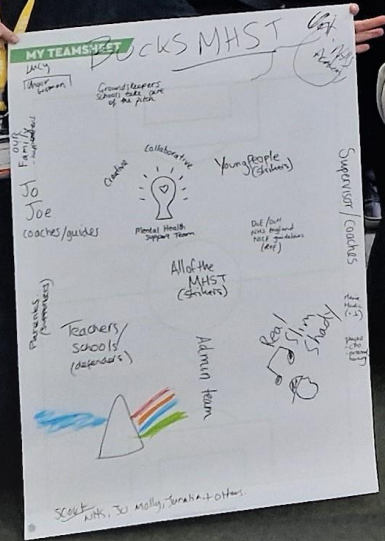 MY TEAMSHEET
BUCKS MHST
Lucy
Chair
woman
Groundskeepers
schools take care
of the pitch
our
Family
supporters
Jo
Joe
coaches/guides
Creative
Collaborative
Mental Health
Support Team
Young People
(strikers)
DoE/DoH
NHS England
NICE guidelines
(Ref)
Supervisor/Coaches
All of the
MHST
(strikers)
Parents
(supporters)
Teachers/
Schools/
(defenders)
Admin team
Real
Slim
Shady
SCOUT
NHS, Jo Molly,